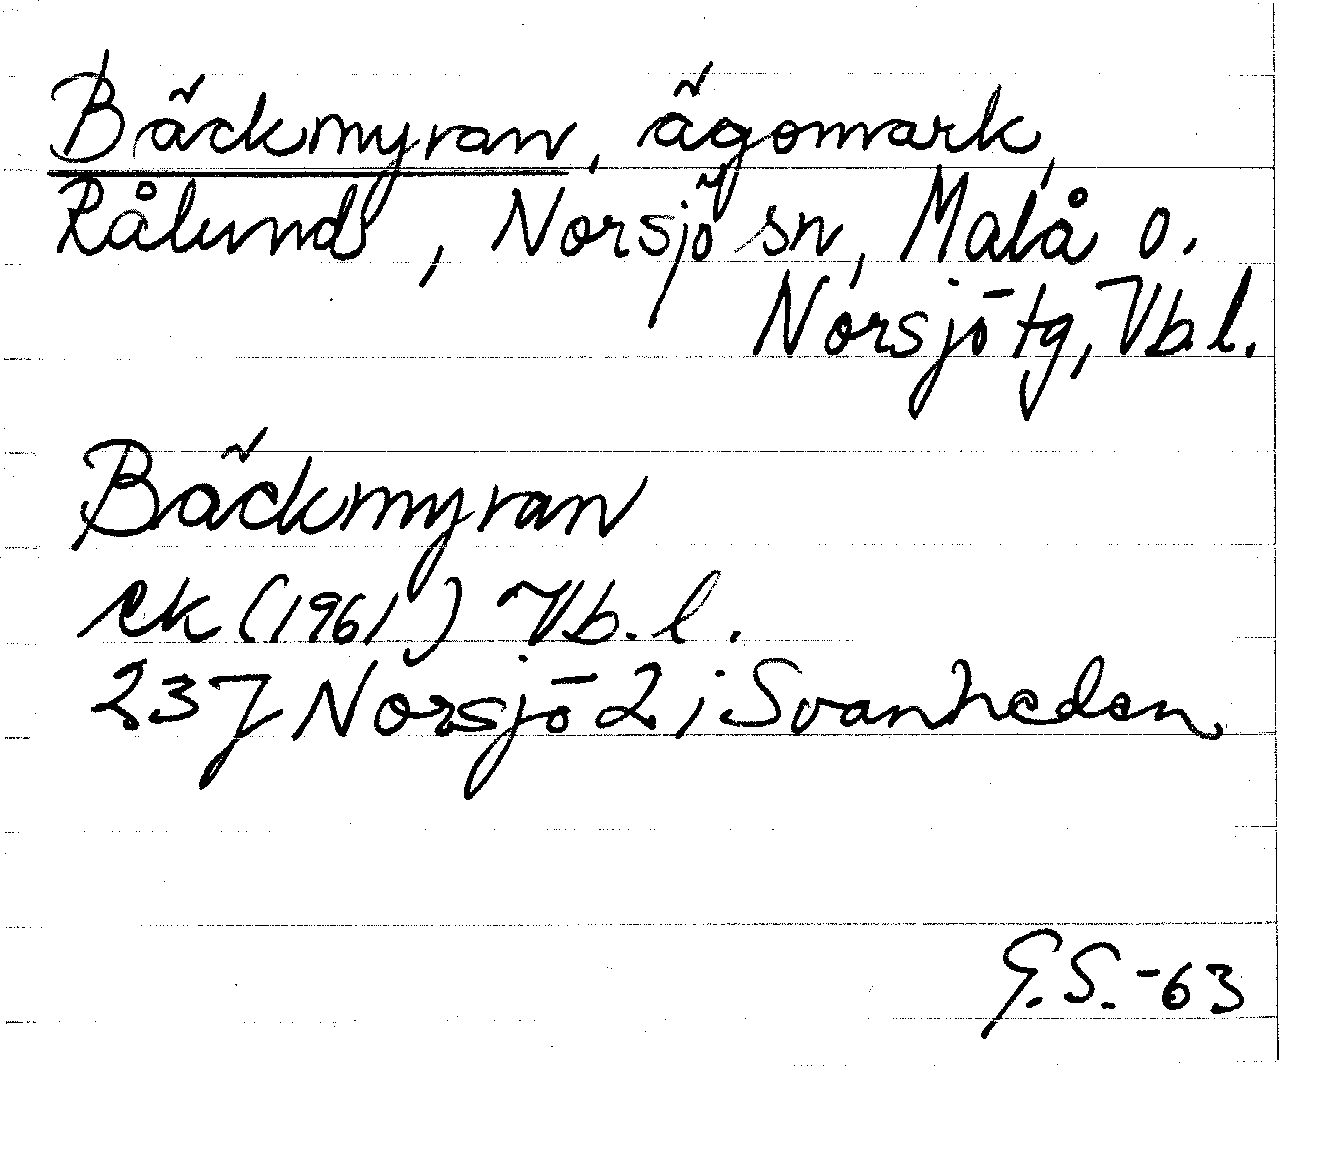 Bäckmyran, ägomark,
Rålund, Norsjö sn, Malå o.
Norsjö tg, Vb.l.
Bäckmyran
ek (1961) Vb.l.
237 Norsjö 2 i Svanheden
G.S.-63